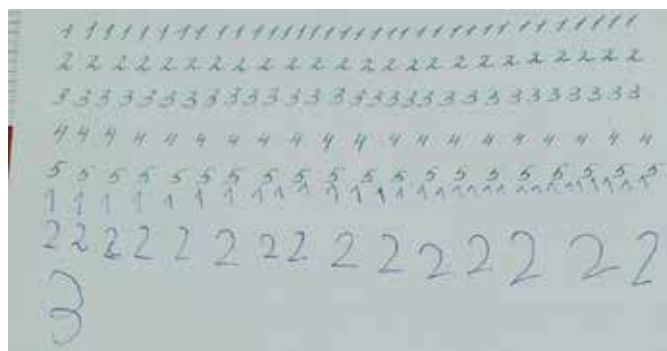 1 1 1 1 1 1 1 1 1 1 1 1 1 1 1 1 1 1 1 1 1 1 1 1 1 1 1 1 1 1 1
2 2 2 2 2 2 2 2 2 2 2 2 2 2 2 2 2 2 2 2 2 2 2 2
3 3 3 3 3 3 3 3 3 3 3 3 3 3 3 3 3 3 3 3 3 3 3 3 3 3 3 3 3 3
4 4 4 4 4 4 4 4 4 4 4 4 4 4 4 4 4 4 4 4
5 5 5 5 5 5 5 5 5 5 5 5 5 5 5 5 5 5 5 5
1 1 1 1 1 1 1 1 1 1 1 1 1 1 1 1 1 1 1 1 1 1 1 1 1 1 1 1 1 1
2 2 2 2 2 2 2 2 2 2 2 2 2 2 2
3